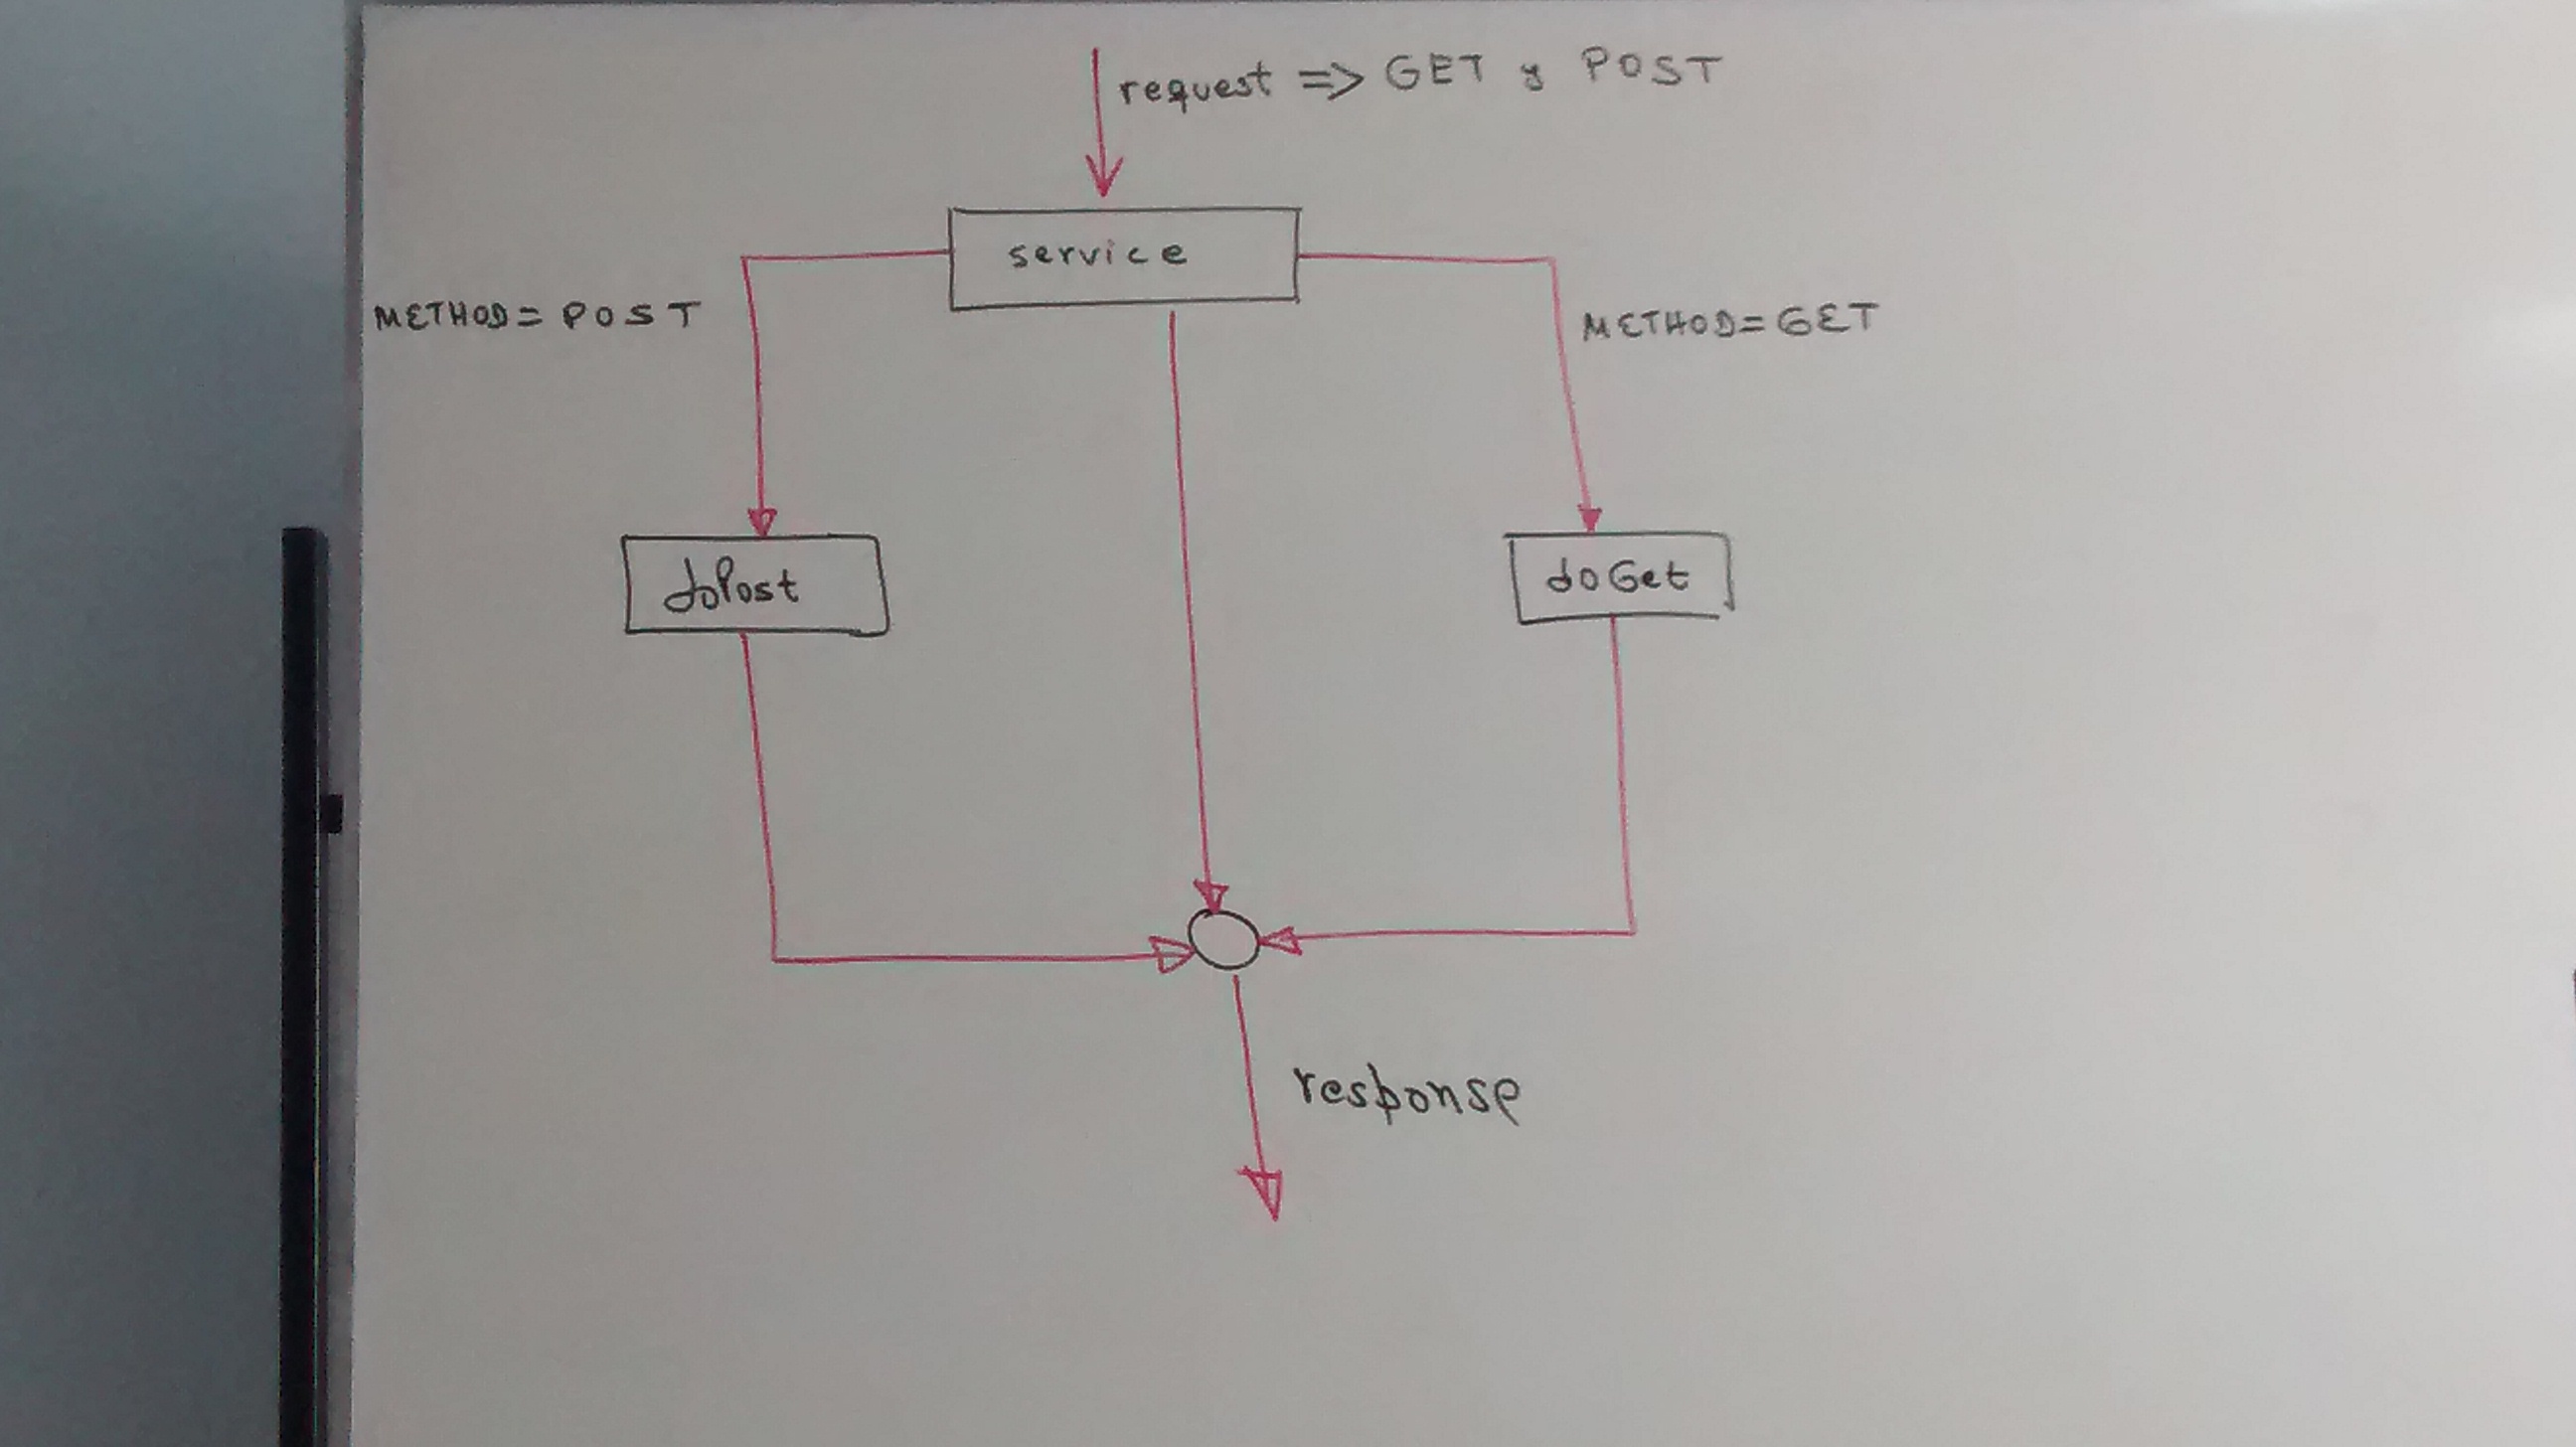 request => GET y POST
service
METHOD= POST
METHOD=GET
doPost
doGet
response